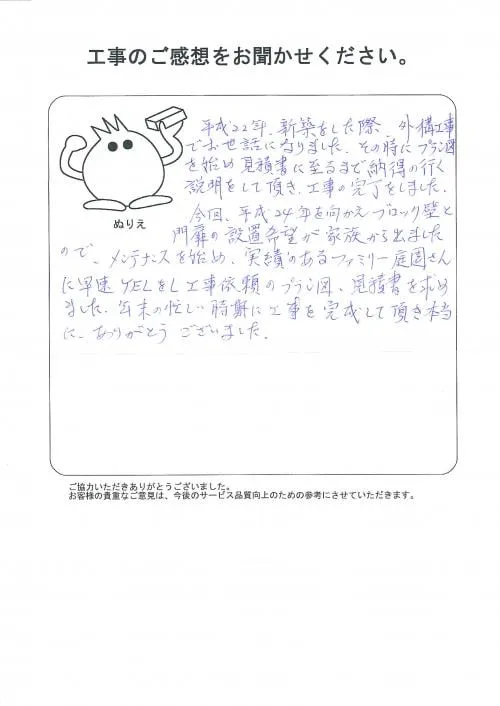 工事のご感想をお聞かせください。
平成22年、新築をした際、外構工事
でお世話になりました。その時にプラン図
を始め見積書に至るまで納得の行く
説明をして頂き、工事の完了をしました。
ぬりえ
今回、平成24年を向かえブロック壁と
門扉の設置希望が家族から出ました
ので、メンテナンスを始め、実績のあるファミリー庭園さん
に早速TELをし工事依頼のプラン図、見積書を求め
ました。年末の忙しい時期に工事を完成して頂き本当
に、ありがとうございました。
ご協力いただきありがとうございました。
お客様の貴重なご意見は、今後のサービス品質向上のための参考にさせていただきます。